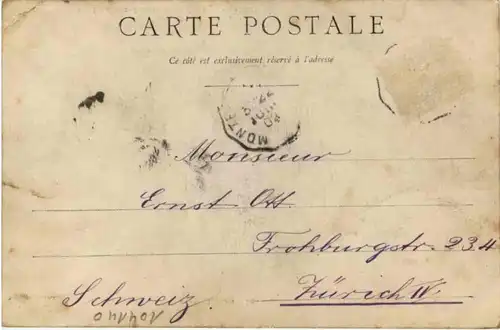 CARTE POSTALE
Ce côté est exclusivement réservé à l'adresse
Monsieur
Ernst Ott
Frohburgstr. 234
Zürich IV.
Schweiz
101410